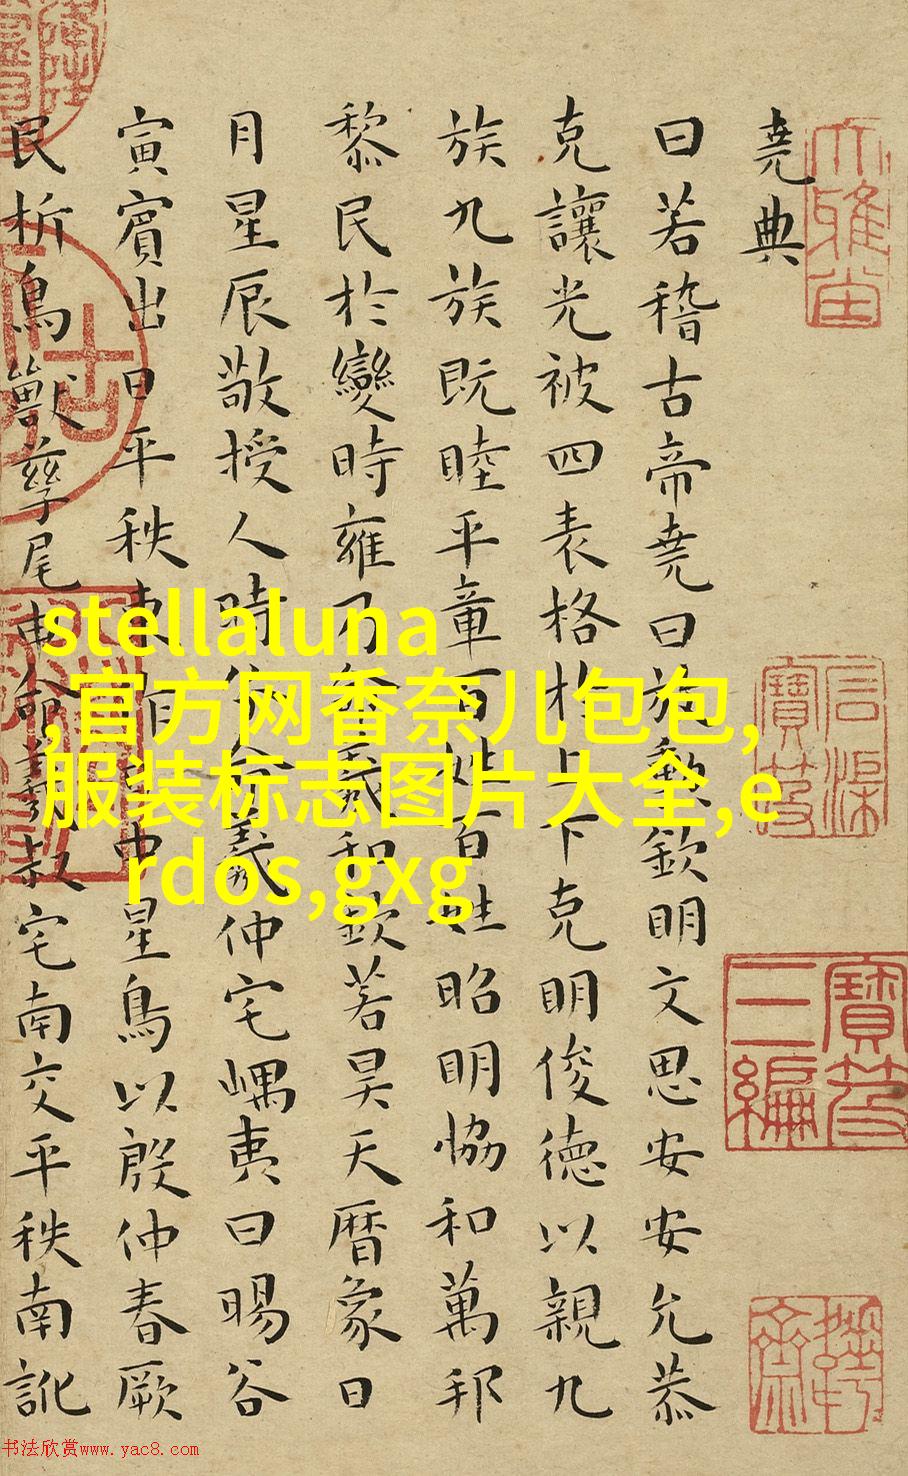 堯典
曰若稽古帝堯曰放勳欽明文思安安允恭
克讓光被四表格于上下克明俊德以親九
族九族既睦平章百姓百姓昭明協和萬邦
黎民於變時雍乃命羲和欽若昊天曆象日
月星辰敬授人時分命羲仲宅嵎夷曰暘谷
寅賓出日平秩東作日中星鳥以殷仲春厥
民析鳥獸孳尾申命羲叔宅南交平秩南訛
stellaluna
,官方网香奈儿包包,
服装标志图片大全,e
rdos,gxg
寶笈
三編
书法欣赏www.yac8.com